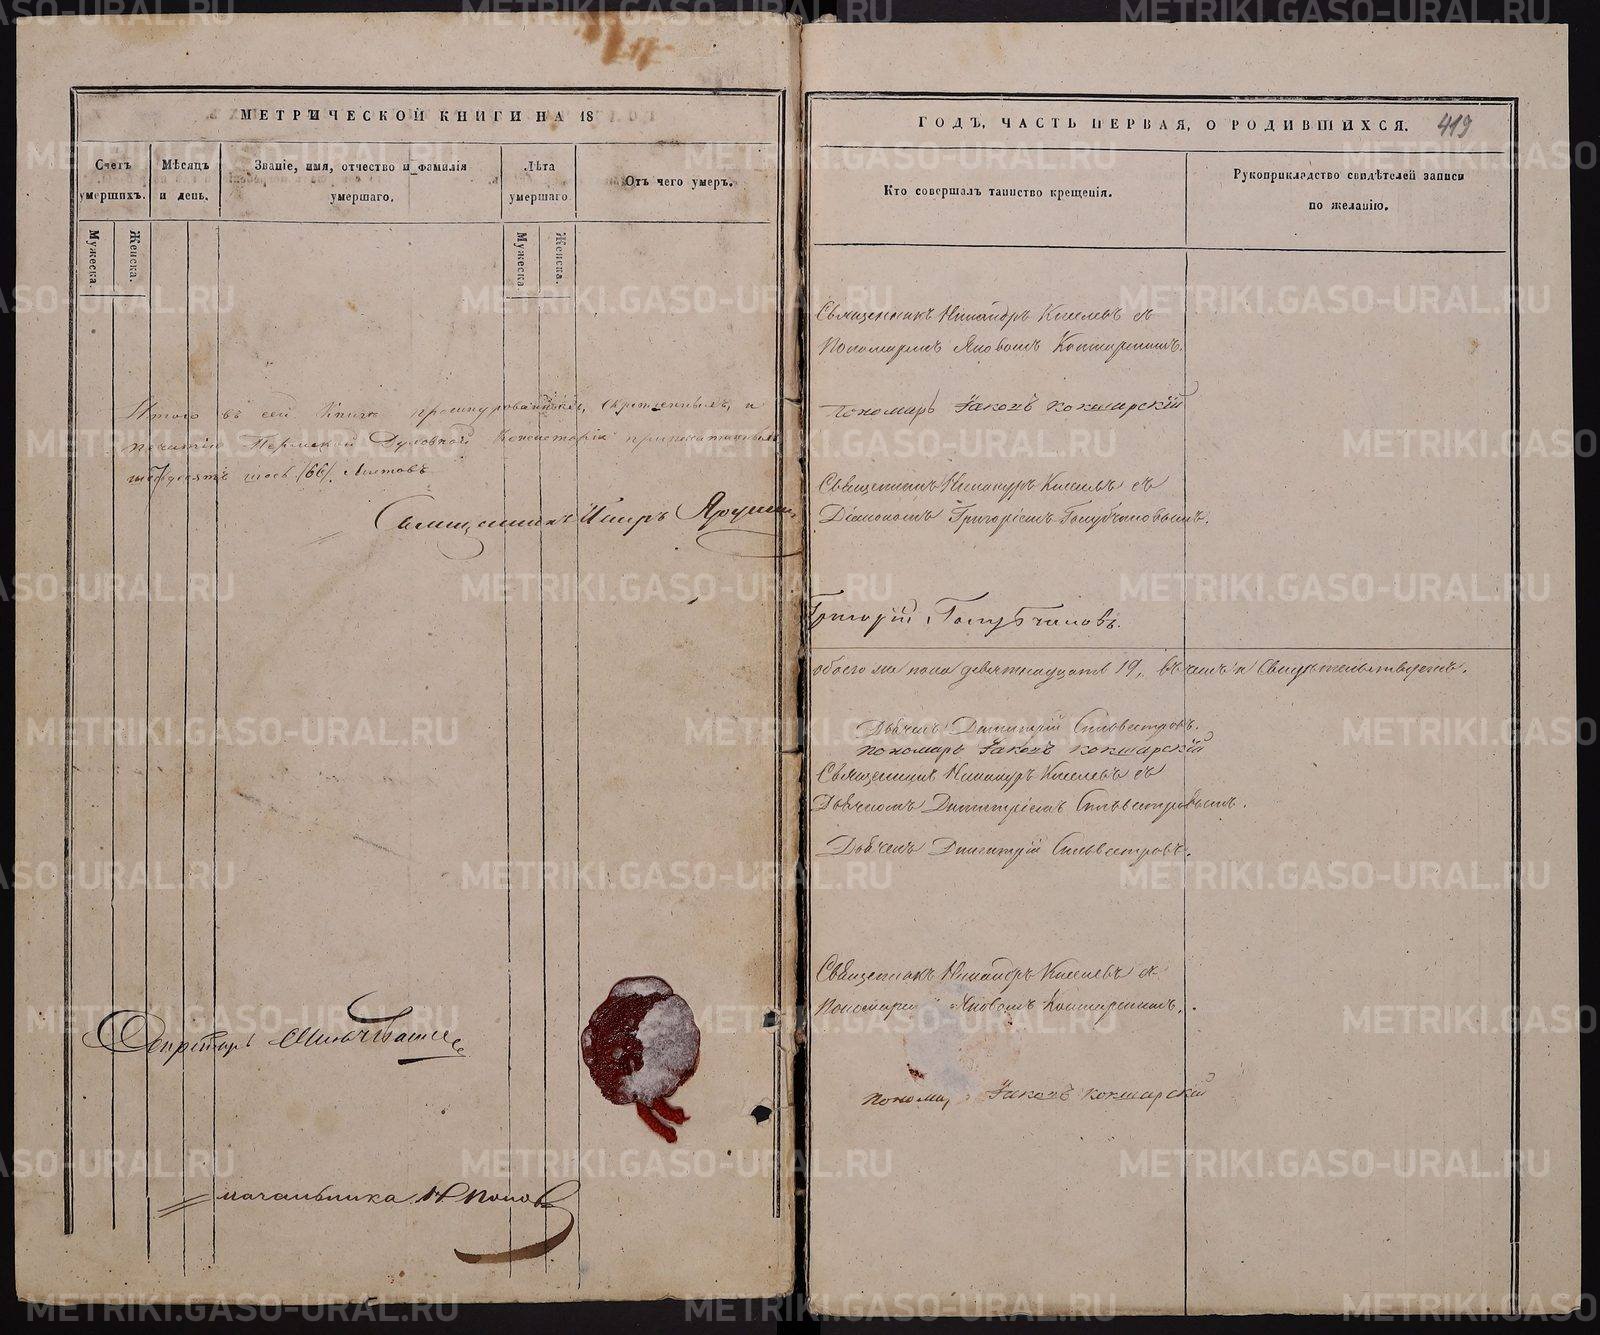 МЕТРИЧЕСКОЙ КНИГИ НА 18
Счетъ умершихъ.
Мѣсяцъ и день.
Званіе, имя, отчество и фамилія умершаго.
Лѣта умершаго
Отъ чего умеръ.
Мужеска.
Женска.
Мужеска.
Женска.
Итого въ сей Книгѣ прошнурованныхъ, скрѣпленныхъ, и
печатію Пермской Духовной Консисторіи припечатанныхъ
шесдесятъ шесть /66/. Листовъ
Священникъ
Секретарь
начальника Н Попов
ГОДЪ, ЧАСТЬ ПЕРВАЯ, О РОДИВШИХСЯ.
419
Кто совершалъ таинство крещенія.
Рукоприкладство свидѣтелей записи по желанію.
Священникъ Никандръ Киселевъ съ
Пономаремъ Яковомъ Кокшарскимъ.
Пономарь Іаковъ Кокшарскій
Священникъ Никандръ Киселевъ съ
Діакономъ Григоріемъ Голубчиковымъ.
Григорій Голубчиковъ.
обоего же пола девятнадцать 19, въ чемъ и Свидѣтельствуемъ.
Дьячекъ Димитрій Сильвестровъ.
пономарь Іаковъ Кокшарскій
Священникъ Никандръ Киселевъ съ
Дьячкомъ Димитріемъ Сильвестровымъ.
Дьячекъ Димитрій Сильвестровъ.
Священникъ Никандръ Киселевъ съ
Пономаремъ Яковомъ Кокшарскимъ.
Іаковъ Кокшарскій
METRIKI.GASO-URAL.RU